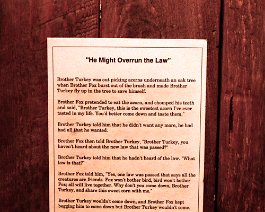 "He Might Overrun the Law"
Brother Turkey was out picking acorns underneath an oak tree
when Brother Fox burst out of the brush and made Brother
Turkey fly up in the tree to save himself.
Brother Fox pretended to eat the acorn, and chomped his teeth
and said, "Brother Turkey, this is the sweetest acorn I've ever
tasted in my life. You'd better come down and taste them."
Brother Turkey told him that he didn't want any more, he had
had all that he wanted.
Brother Fox then told Brother Turkey, "Brother Turkey, you
haven't heard about the new law that was passed?"
Brother Turkey told him that he hadn't heard of the law. "What
law is that?"
Brother Fox told him, "Yes, one law was passed that says all the
creatures are friends. Fox won't bother bird, bird won't bother
Fox; all will live together. Why don't you come down, Brother
Turkey, and share this sweet corn with me."
Brother Turkey wouldn't come down, and Brother Fox kept
begging him to come down but Brother Turkey wouldn't come.